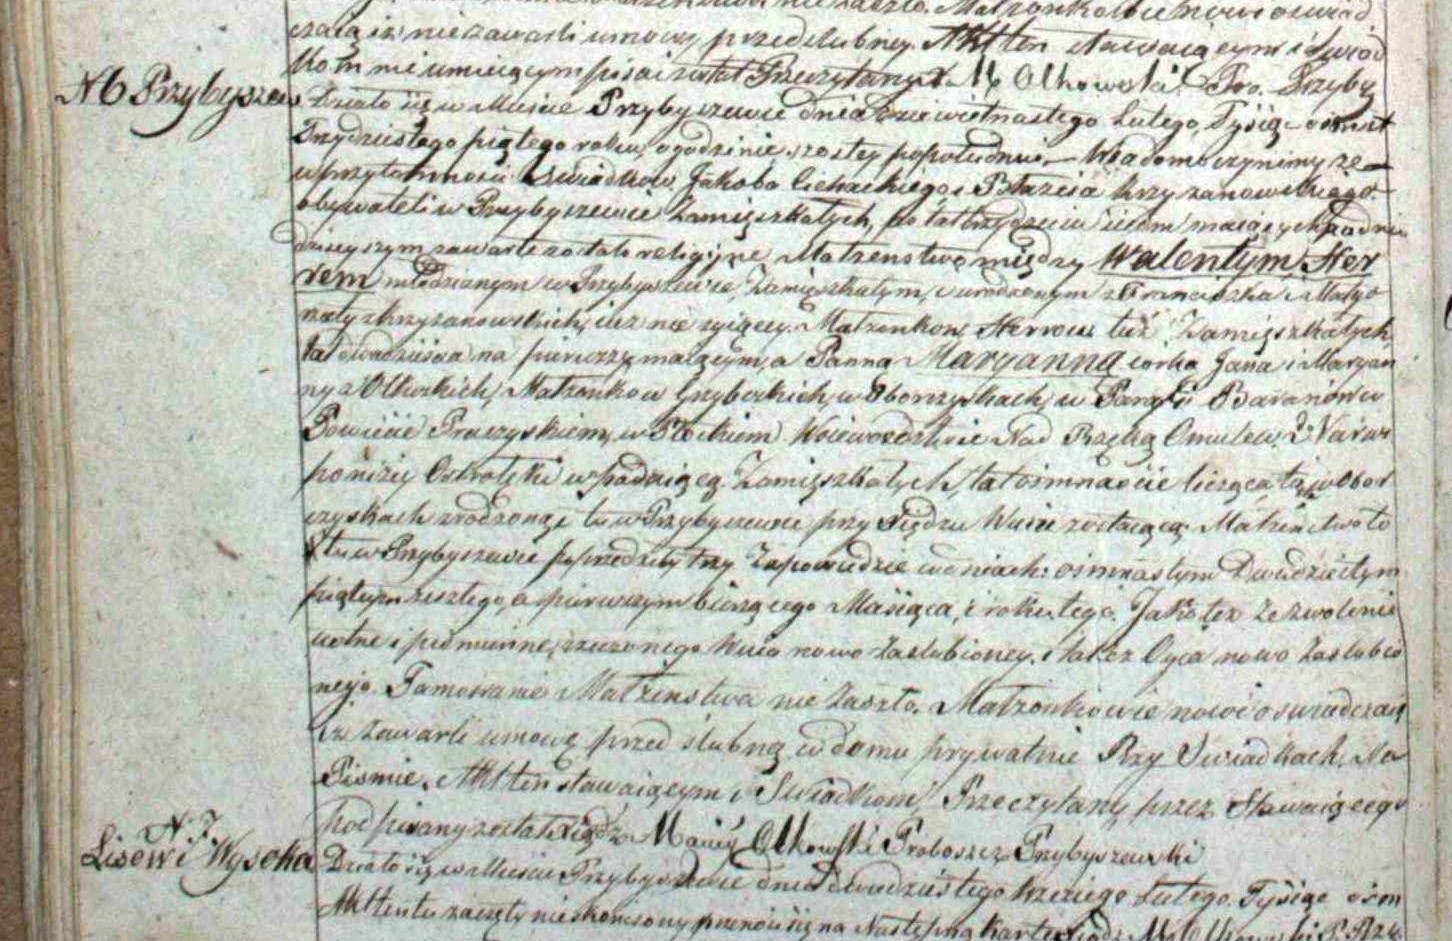 czaią iż nie zawarli umowy przedślubney. Akt ten stawaiącym i Swiad
kom nie umieiącym pisać został Przeczytany X. M Olkowski Pro. Przyby
N 6 Przybyszew
Działo się w Mieście Przybyszewie dnia dziewiętnastego Lutego, Tysiąc ośmset
Trzydziestego piątego roku, o godzinie szostey popołudniu, — Wiadomo czynimy że —
w przytomności Swiadków Jakoba Cichackiego i Błażeia Krzyzanowskiego
obywateli w Przybyszewie Zamięszkałych, po lat trzydzieści siedm maiących, w dniu
dzisieyszym zawarte zostało religijne Małżenstwo między Walentym Her
rem młodzianym w Przybyszewie Zamięszkałym, i urodzonym z Franciszka i Małgo
rzaty z Krzyzanowskich, iuż nie żyiącey Małżonków Herrow tuż Zamięszkałych,
lat dwadzieścia na pierwszy maiącym, a Panną Maryanną corką Jana i Maryan
ny z Olkoskich, Małżonkow Grzybowskich, w Oborczyskach, w Parafii Baranowo
Powiecie Praszyskiem, w Płockiem Woiewodztwie Nad Rzeką Omulew, do Narwi
poniżey Ostrołęki wpadaiącą Zamięszkałych, lat osmnaście liczącą tam w Obor
czyskach zrodzoną, i tu w Przybyszewie przy Xiędzu Wuiu zostaiącą. Małżenstwo to
tu w Przybyszewie poprzedziły trzy Zapowiedzie w dniach: osmnastym Dwudziestym
piątym zeszłego, a pierwszym bieżącego Miesiąca, i roku tego. Jako też Zezwolenie
ustne i piśmienne, rzeczonego Wuia nowo Zaślubioney, i także Oyca nowo Zaślubio
nego. Tamowanie Małżenstwa nie Zaszło. Małżonkowie nowi oswiadczaią
iż Zawarli umowę przedślubną w domu prywatnie Przy Swiadkach, Na
Piśmie. Akt ten stawaiącym i Swiadkom Przeczytany przez Stawaiącego
podpisany został Xiądz Maciey Olkowski Proboszcz Przybyszewski
N 7
Lisow i Wysoka
Działo się w Mieście Przybyszewie dnia dwudziestego trzeciego Lutego. Tysiąc ośm
Akt ten tu zaczęty nie skończony przenosi się na Następną kartę Xiądz M Olkowski P. Prz.